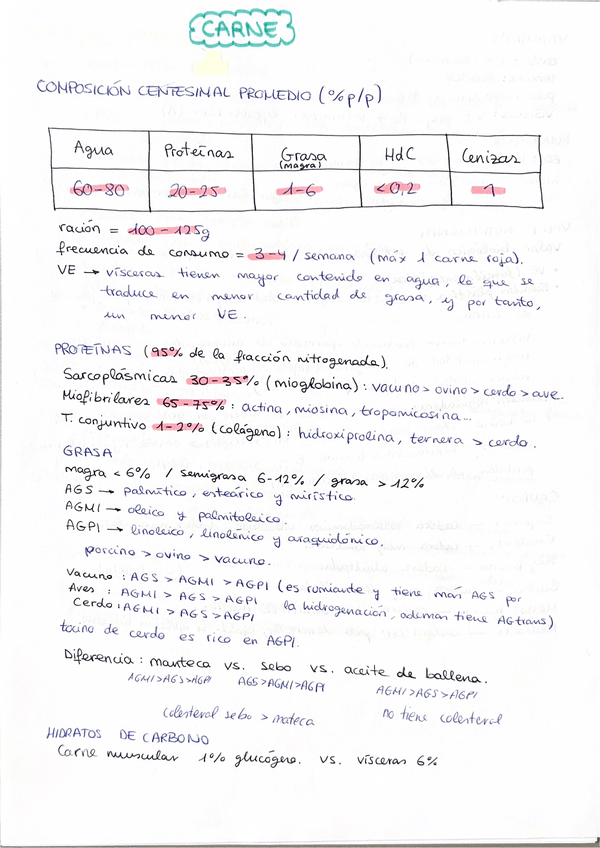 CARNE
COMPOSICIÓN CENTESIMAL PROMEDIO (% p/p)
Agua Proteínas Grasa (magra) HdC Cenizas
60-80 20-25 1-6 <0,2 1
ración = 100 - 125g
frecuencia de consumo = 3-4 / semana (máx 1 carne roja).
VE → vísceras tienen mayor contenido en agua, lo que se
traduce en menor cantidad de grasa, y por tanto,
un menor VE.
PROTEÍNAS (95% de la fracción nitrogenada).
Sarcoplásmicas 30-35% (mioglobina): vacuno > ovino > cerdo > ave.
Miofibrilares 65-75% : actina, miosina, tropomiosina...
T. conjuntivo 1-2% (colágeno): hidroxiprolina, ternera > cerdo.
GRASA
magra < 6% / semigrasa 6-12% / grasa > 12%
AGS → palmítico, esteárico y mirístico.
AGMI → oleico y palmitoleico.
AGPI → linoleico, linolénico y araquidónico.
porcino > ovino > vacuno.
Vacuno : AGS > AGMI > AGPI (es rumiante y tiene más AGS por
Aves : AGMI > AGS > AGPI la hidrogenación, además tiene AGtrans)
Cerdo : AGMI > AGS > AGPI
tocino de cerdo es rico en AGPI.
Diferencia : manteca vs. sebo vs. aceite de ballena.
AGMI>AGS>AGPI AGS>AGMI>AGPI AGMI>AGS>AGPI
Colesterol sebo > mateca no tiene colesterol
HIDRATOS DE CARBONO
Carne muscular 1% glucógeno. vs. vísceras 6%